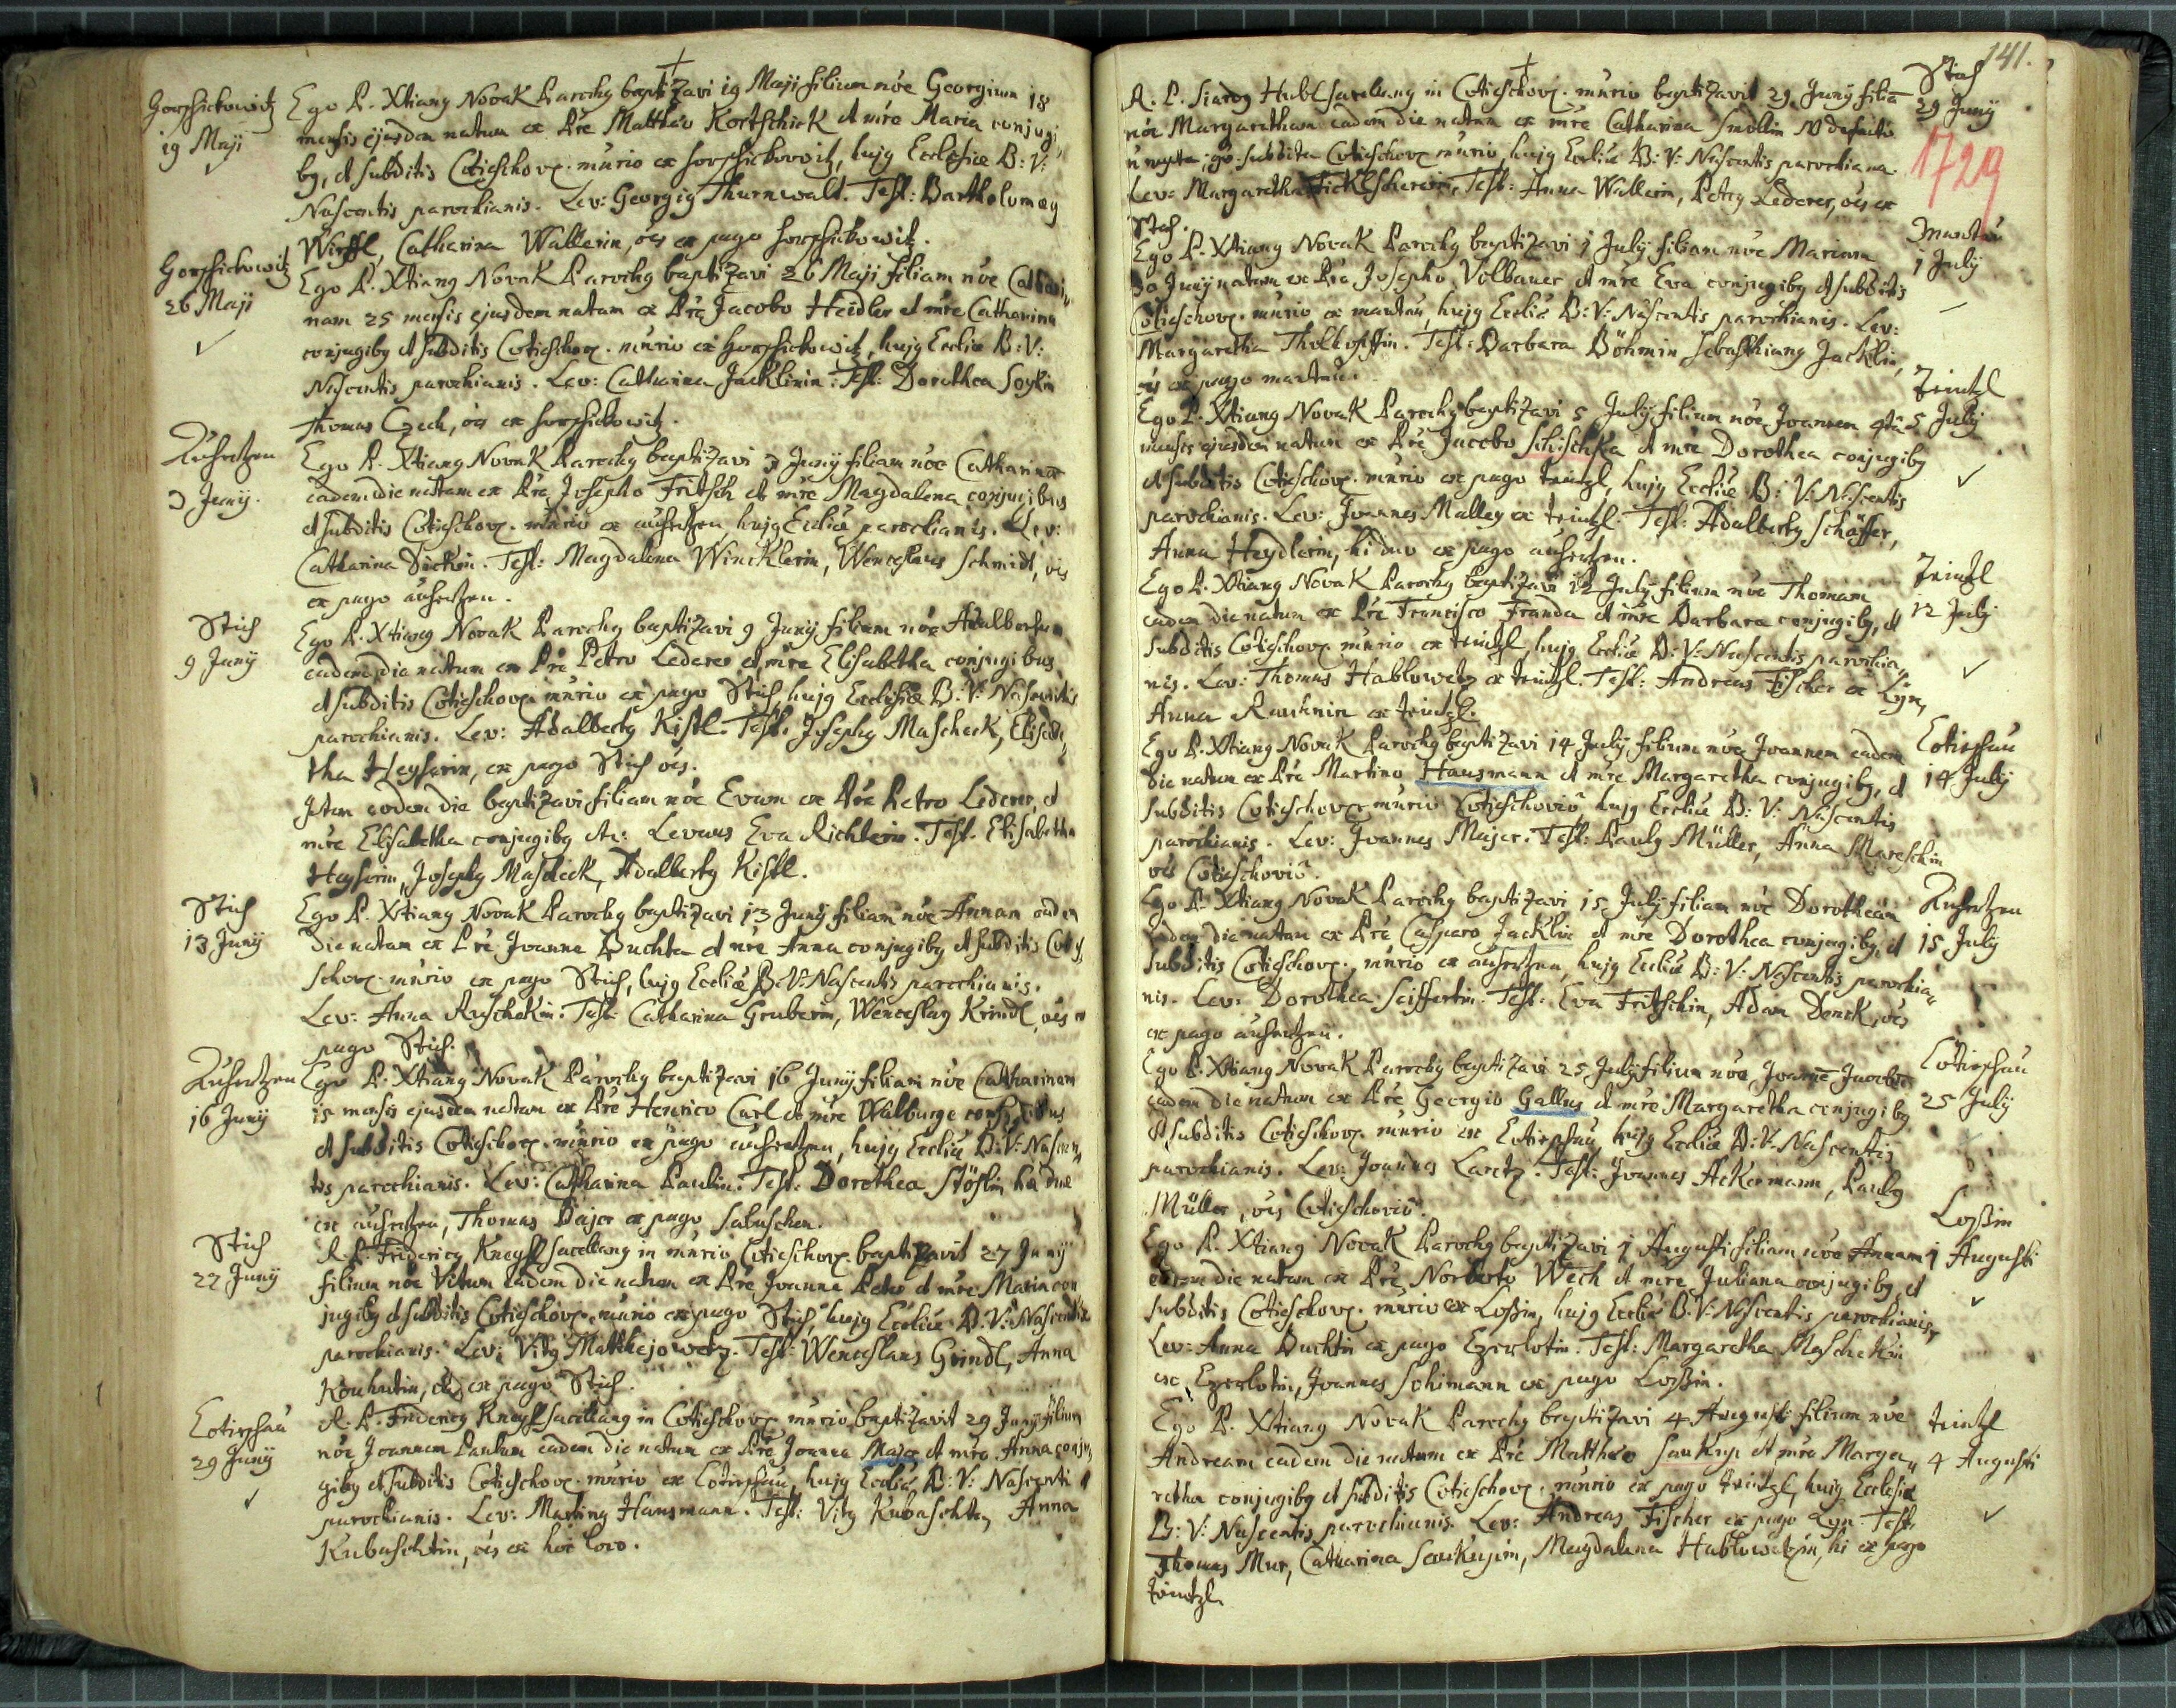 Gorschickowitz
19 Maji
Ego P. Xtiang Novak Parochg baptizavi 19 Maji filium nõe Georgium 18
mensis ejusdem natum ex Pre Mattheo Kortschick et mre Maria conjugi,
bg, et subditis Cotieschov. munio ex horschickowitz, hujg Ecclesiae B: V:
Nascentis parochianis. Lev: Georgig Thurnwalt. Test: Bartholomeg
Wirffl, Catharina Wallerin, oes ex pago horschikowitz.
Gorschickowitz
26 Maji
Ego P. Xtiang Novak Parochg baptizavi 26 Maji filiam nõe Cathari,,
nam 25 mensis ejusdem natam ex Pre Jacobo Heidler et mre Catharina
conjugibg et subditis Cotieschov. munio ex Gorschickowitz, hujg Eccliae B: V:
Nascentis parochianis. Lev: Catharina Jacklinin. Test: Dorothea
Thomas Czech, oes ex horschickowitz.
Auhertzen
3 Junij.
Ego P. Xtiang Novak Parochg baptizavi 3 Junij filiam nõe Catharinam
eadem die natam ex Pre Josepho Fritsch et mre Magdalena conjugibus
et subditis Cotieschov. munio ex auhertzen hujg Eccliae parochianis. Lev:
Catharina. Test: Magdalena Wincklerin, Wenceslaus Schmidt, oes
ex pago auhertzen.
Stich
9 Junij
Ego P. Xtiang Novak Parochg baptizavi 9 Junij filium nõe Adalbertum
eadem die natum ex Pre Petro Lederer et mre Elisabetha conjugibus
et subditis Cotieschov. munio ex pago Stich, hujg Ecclesiae B: V: Nascentis
parochianis. Lev: Adalbertg Kistl. Test: Josephg Mascheck, Elisabe,,
tha Heyserin, ex pago Stich oes.
Item eodem die baptizavi filiam nõe Evam ex Pre Petro Lederer, et
mre Elisabetha conjugibg etc: Levans Eva Richterin. Test. Elisabetha
Heyserin, Josephg Mascheck, Adalbertg Kistl.
Stich
13 Junij
Ego P. Xtiang Novak Parochg baptizavi 13 Junij filiam nõe Annam eadem
die natam ex Pre Joanne Buchta et mre Anna conjugibg et subditis Cotie,
schov. munio ex pago Stich, hujg Eccliae B: V: Nascentis parochianis.
Lev: Anna Ruschekin. Test: Catharina Gruberin, Wenceslag Krindl, oes ex
pago Stich.
Auhertzen
16 Junij
Ego P. Xtiang Novak Parochg baptizavi 16 Junij filiam nõe Catharinam
15 mensis ejusdem natam ex Pre Henrico Carl et mre Walburge conjugibus
et subditis Cotieschov. munio ex pago auhertzen, hujg Eccliae B: V: Nascen,,
tis parochianis. Lev: Catharina Paulin. Test: Dorothea Stöhlin hae duae
ex auhertzen, Thomas Bajer ex pago Sabuschen.
Stich
27 Junij
R. P. Fridericg Kneysl sacellang in munio Cotieschov. baptizavit 27 Junij
filium nõe Vitum eadem die natum ex Pre Joanne Peter et mre Maria con
jugibg et subditis Cotieschov. munio ex pago Stich, hujg Eccliae B: V: Nascentis
parochianis. Lev: Vitg Matthejowetz. Test: Wenceslaus Grindl, Anna
Kouhutin, oes ex pago Stich.
Cotieschau
29 Junij
R. P. Fridericg Kneysl sacellang in Cotieschov. munio, baptizavit 29 Junij filium
nõe Joannem Paulum eadem die natum ex Pre Joanne Majer et mre Anna conju,,
gibg et subditis Cotieschov. munio ex Cotieschau, hujg Eccliae B: V: Nascenti
parochianis. Lev: Marting Hausmann. Test: Vitg Kubaschta, Anna
Kubaschtin, oes ex hoc loco.
141.
Stich
29 Junij
1729
R. P. Siardg Hubl sacellang in Cotieschov. munio baptizavit 29 Junij filia
nõe Margaretham eadem die natam ex mre Catharina Smollin
subdita Cotieschov. munio, hujg Eccliae B: V: Nascentis parochiana.
Lev: Margaretha. Test: Anna Wallerin, Petrg Lederer, oes ex
Stich.
Mantau
1 Julij
Ego P. Xtiang Novak Parochg baptizavi 1 Julij filiam nõe Mariam
30 Junij natam ex Pre Josepho Volbauer et mre Eva conjugibg et subditis
Cotieschov. munio ex mantau, hujg Eccliae B: V: Nascentis parochianis. Lev:
Margaretha. Test: Barbara Böhmin Sebasthiang Jacklin,
oes ex pago mantau.
Zwintzl
5 Julij
Ego P. Xtiang Novak Parochg baptizavi 5 Julij filium nõe Joannem 4ta
mensis ejusdem natum ex Pre Jacobo Schischka et mre Dorothea conjugibg
et subditis Cotieschov. munio ex pago teintzl, hujg Eccliae B: V: Nascentis
parochianis. Lev: Joannes Malley ex teintzl. Test: Adalbertg Schäffer,
Anna Heydlerin, hi duo ex pago auhertzen.
Teintzl
12 Julij
Ego P. Xtiang Novak Parochg baptizavi 12 Julij filium nõe Thomam
eadem die natum ex Pre Francisco Franda et mre Barbara conjugibg, et
subditis Cotieschov. munio ex teintzl, hujg Eccliae B: V: Nascentis parochia,,
nis. Lev: Thomas Hablowetz ex teintzl. Test: Andreas Fischer ex Lyn,
Anna ex teintzl.
Cotieschau
14 Julij
Ego P. Xtiang Novak Parochg baptizavi 14 Julij filium nõe Joannem eadem
die natum ex Pre Martino Hausmann et mre Margaretha conjugibg, et
subditis Cotieschov. munio Cotieschovio hujg Eccliae B: V: Nascentis
parochianis. Lev: Joannes Majer. Test: Paulg Müller, Anna Mareschin
oes Cotieschovio.
Auhertzen
15 Julij
Ego P. Xtiang Novak Parochg baptizavi 15 Julij filiam nõe Dorotheam
eadem die natam ex Pre Casparo Jacklin et mre Dorothea conjugibg, et
subditis Cotieschov. munio ex auhertzen, hujg Eccliae B: V: Nascentis parochia,,
nis. Lev: Dorothea Seiffertin. Test: Eva Fritschin, Adam Denck, oes
ex pago auhertzen.
Cotieschau
25 Julij
Ego P. Xtiang Novak Parochg baptizavi 25 Julij filium nõe Joanne Jacobu
eadem die natum ex Pre Georgio Gallus et mre Margaretha conjugibg
et subditis Cotieschov. munio ex Cotieschau, hujg Eccliae B: V: Nascentis
parochianis. Lev: Joannes Laretz. Test: Joannes Ackermann, Paulg
Müller, oes Cotieschovio.
Loßin
1 Augusti
Ego P. Xtiang Novak Parochg baptizavi 1 Augusti filiam nõe Annam
eadem die natam ex Pre Norberto Wech et mre Juliana conjugibg, et
subditis Cotieschov. munio ex Loßin, hujg Eccliae B: V: Nascentis parochianis,
Lev: Anna Buchtin ex pago Ezerlotin. Test: Margaretha Maschekin
ex Ezerlotin, Joannes Schimann ex pago Loßin.
teintzl
4 Augusti
Ego P. Xtiang Novak Parochg baptizavi 4 Augusti filium nõe
Andream eadem die natum ex Pre Mattheo Saukup et mre Marga,,
retha conjugibg et subditis Cotieschov. munio ex pago teintzl, hujg Ecclesiae
B: V: Nascentis parochianis. Lev: Andreas Fischer ex pago Lyn. Test.
Thomas Mur, Catharina Saukupin, Magdalena Hablowetzin, hi ex pago
teintzl.